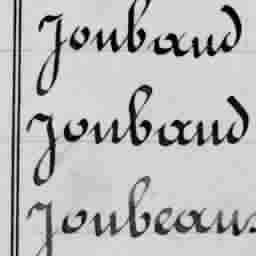 Joubaud
Joubaud
Joubeaus